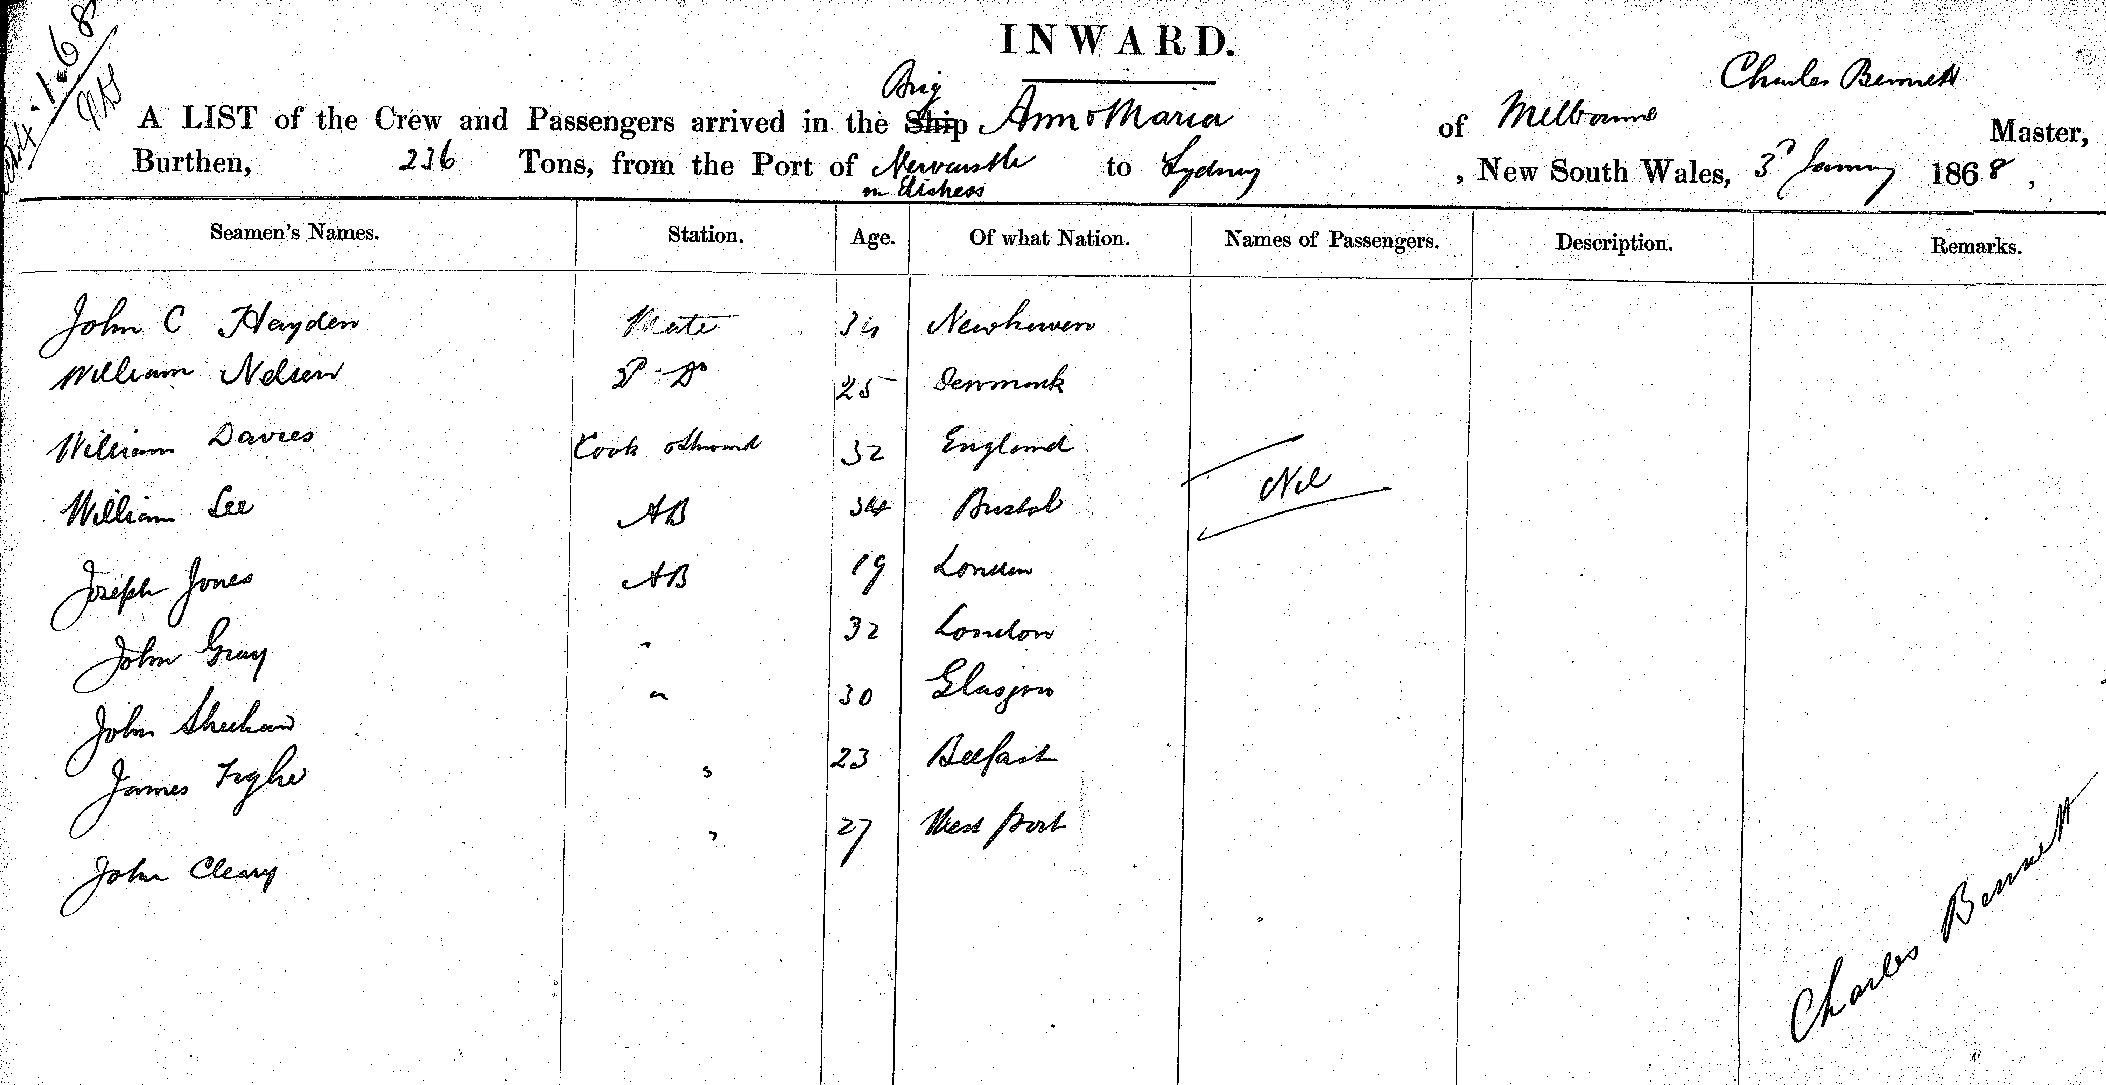 INWARD.
4.1.68
Brig Charles Bennett
A LIST of the Crew and Passengers arrived in the Ship Ann & Maria of Melbourne Master,
Burthen, 236 Tons, from the Port of Newcastle to Sydney, New South Wales, 3d January 1868,
in distress
Seamen's Names. Station. Age. Of what Nation. Names of Passengers. Description. Remarks.
John C Hayden Mate 34 Newhaven
William Nelsen 25 Denmark
William Davies Cook & Steward 32 England
William Lee AB 34 Bristol
Nil
Joseph Jones AB 19 London
John Gray " 32 London
John Sheehan " 30 Glasgow
James Tighe " 23 Belfast
John Cleary " 27 West port
Charles Bennett